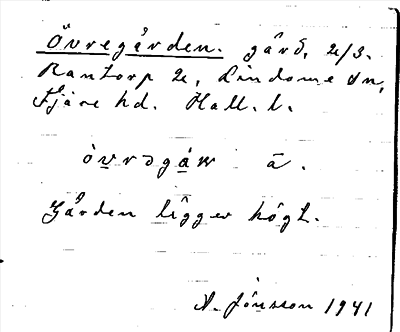 Övregården. gård, 2/3.
Rantorp 2, Lindome sn,
Fjäre hd. Hall. l.
òvrəgáɴ ā.
Gården ligger högt.
A. Jönsson 1941